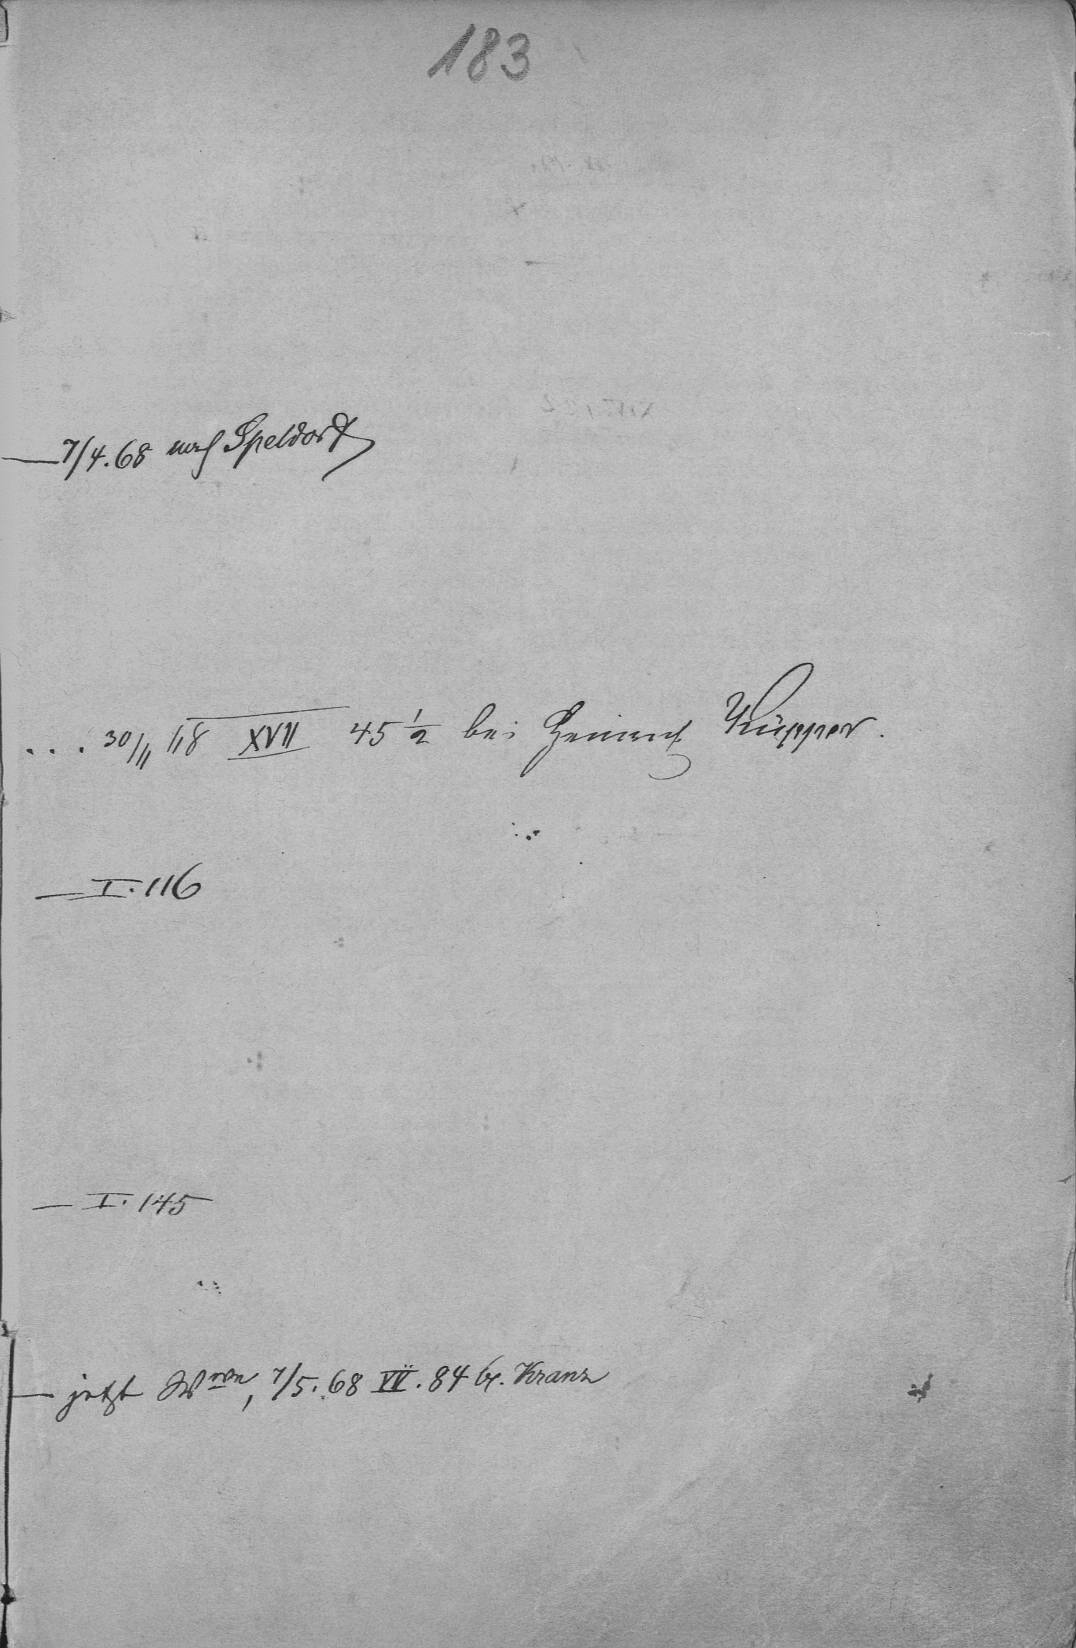 183
— 7/4. 68 nach Speldorf
... 30/11 68 XVII 45 1/2 bei Heinrich Küpper.
— I. 116
— I. 145
— jetzt Wwe, 7/5. 68 84 Kranz